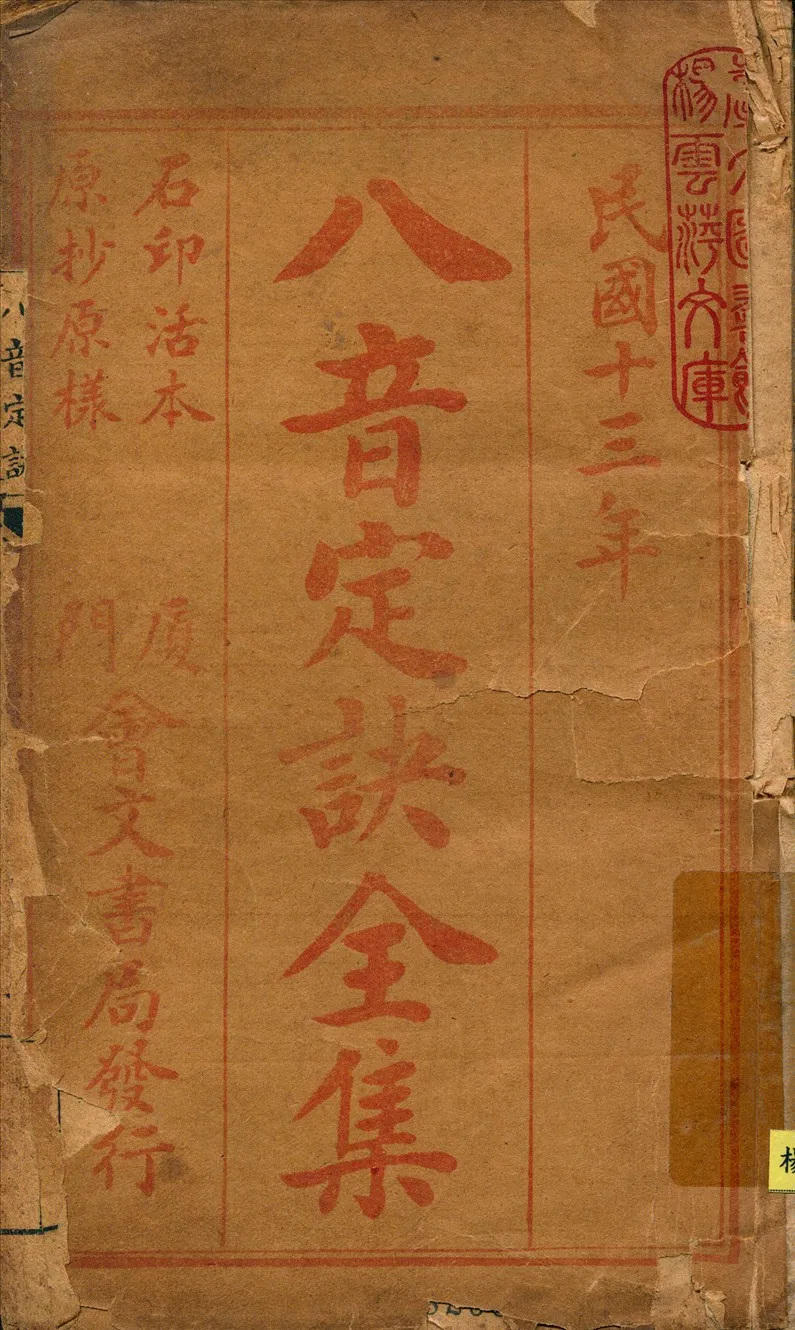 民國十三年
八音定訣全集
石印活本
原抄原樣
廈門
會文書局發行
楊雲萍文庫
八音定訣
楊